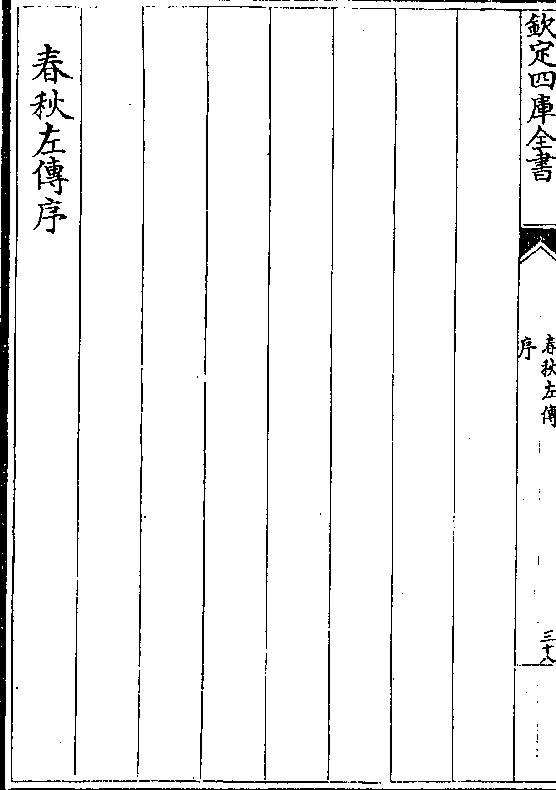 欽定四庫全書
春秋左傳
序
三十八
春秋左傳序